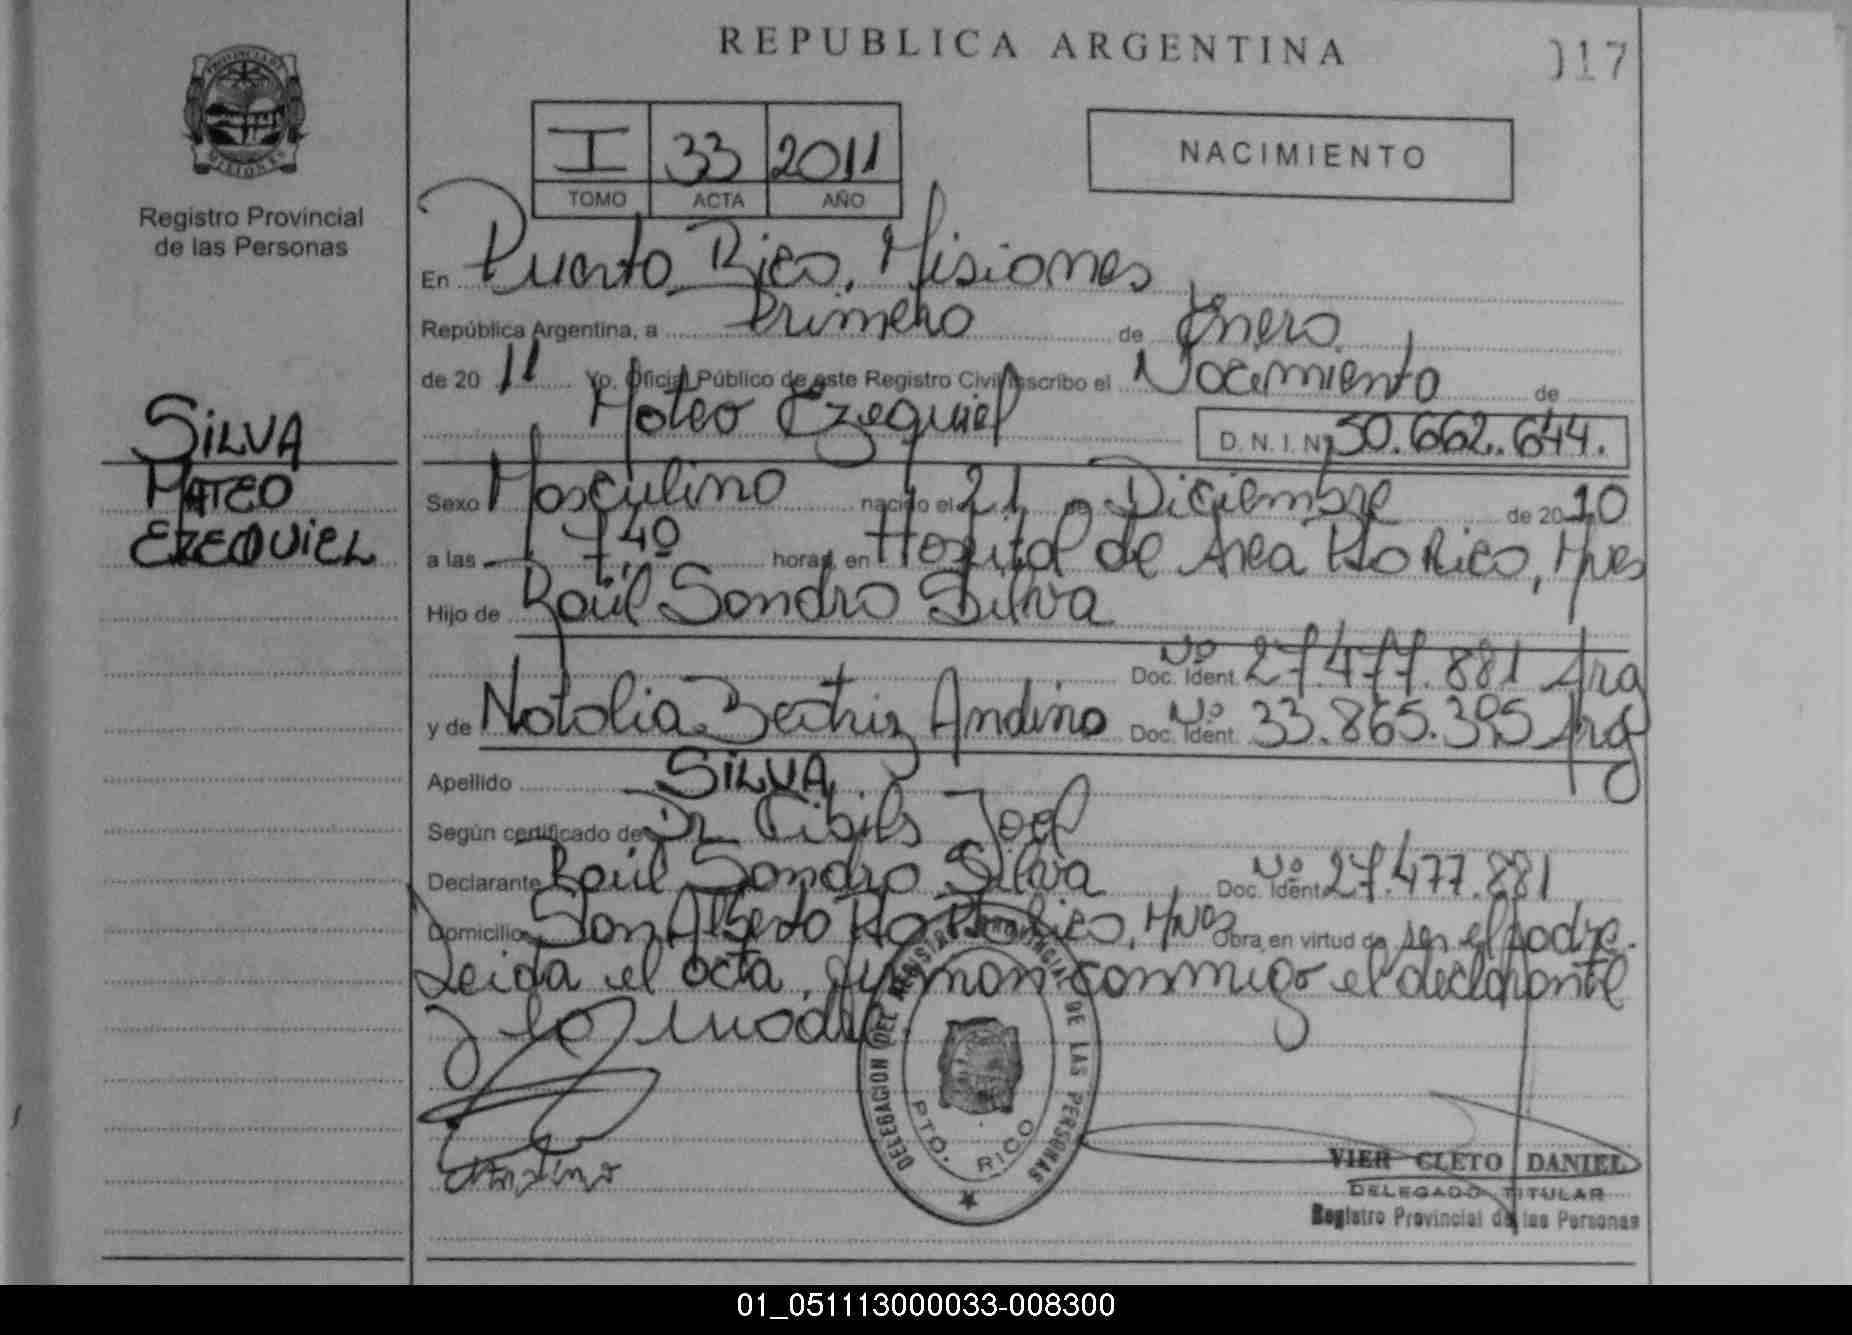 REPUBLICA ARGENTINA
017
PROVINCIA DE MISIONES
Registro Provincial
de las Personas
I 33 2011
TOMO ACTA AÑO
NACIMIENTO
En Puerto Rico, Misiones
República Argentina, a Primero de Enero
de 2011 Yo. Oficial Público de este Registro Civil inscribo el Nacimiento de
Mateo Ezequiel D.N.I. Nº 50.662.644.
SILVA
MATEO
EZEQUIEL
Sexo Masculino nacido el 21 de Diciembre de 2010
a las 7,40 horas, en Hospital de Area Pto Rico, Mnes
Hijo de Raúl Sandro Silva
Doc. Ident. Nº 27.477.881 Arg
y de Natalia Beatriz Andino Doc. Ident. Nº 33.865.395 Arg
Apellido SILVA
Según certificado de Dr Cibils Joel
Declarante Raúl Sandro Silva Doc. Ident. Nº 27.477.881
Domicilio San Alberto Pto Rico, Mnes Obra en virtud de ser el padre.
Leida el acta, firman conmigo el declarante
y la madre
Andino
DELEGACION DEL REGISTRO PROVINCIAL DE LAS PERSONAS
PTO. RICO
VIER CLETO DANIEL
DELEGADO TITULAR
Registro Provincial de las Personas
01_051113000033-008300